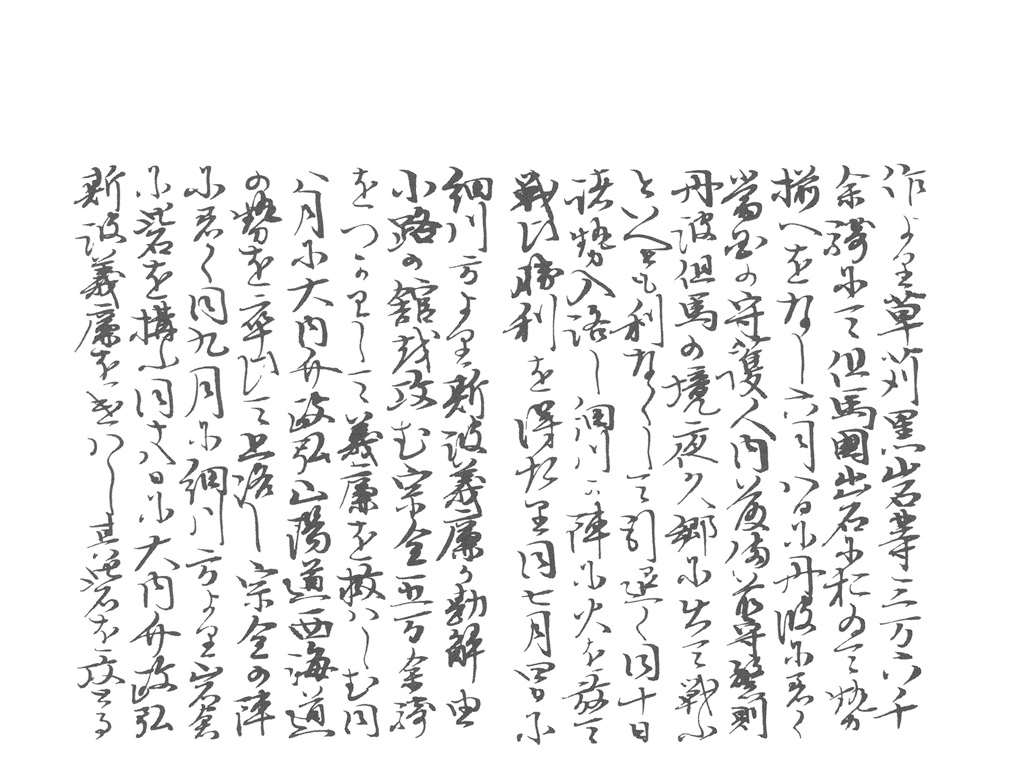 作より草苅黒岩等三万六千
余騎にて但馬国出石に於ゐて勢
揃へをなし六月八日に丹波に着く
當國の守護人内藤備前守警則
丹波但馬の境夜久郷に出て戦ふ
といへとも利なくして引退く同十日
諸勢入洛し細川か陣に火を發て
戦ひ勝利を得たり同七月四日に
細川方より斯波義廉か勘解由
小路の舘越攻む宗全五万余騎
をつかはして義廉を救はしむ同
八月に大内介政弘山陽道西海道
の勢を率ひて上洛し宗全の陣
に着く同九月に細川方より岩倉
に砦を構ふ同十八日に大内介政弘
斯波義廉をつかはし其砦を攻る